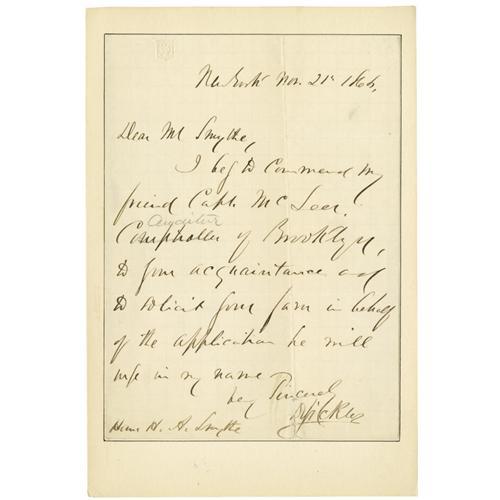 New York Nov. 21st 1866.
Dear Mr Smythe,
I beg to commend my
friend Capt. McLeer,
Auditor
Comptroller of Brooklyn,
to your acquaintance and
to solicit your favor in behalf
of the application he will
urge in my name
Very Sincerely
DSickles
Hon. H. A. Smythe